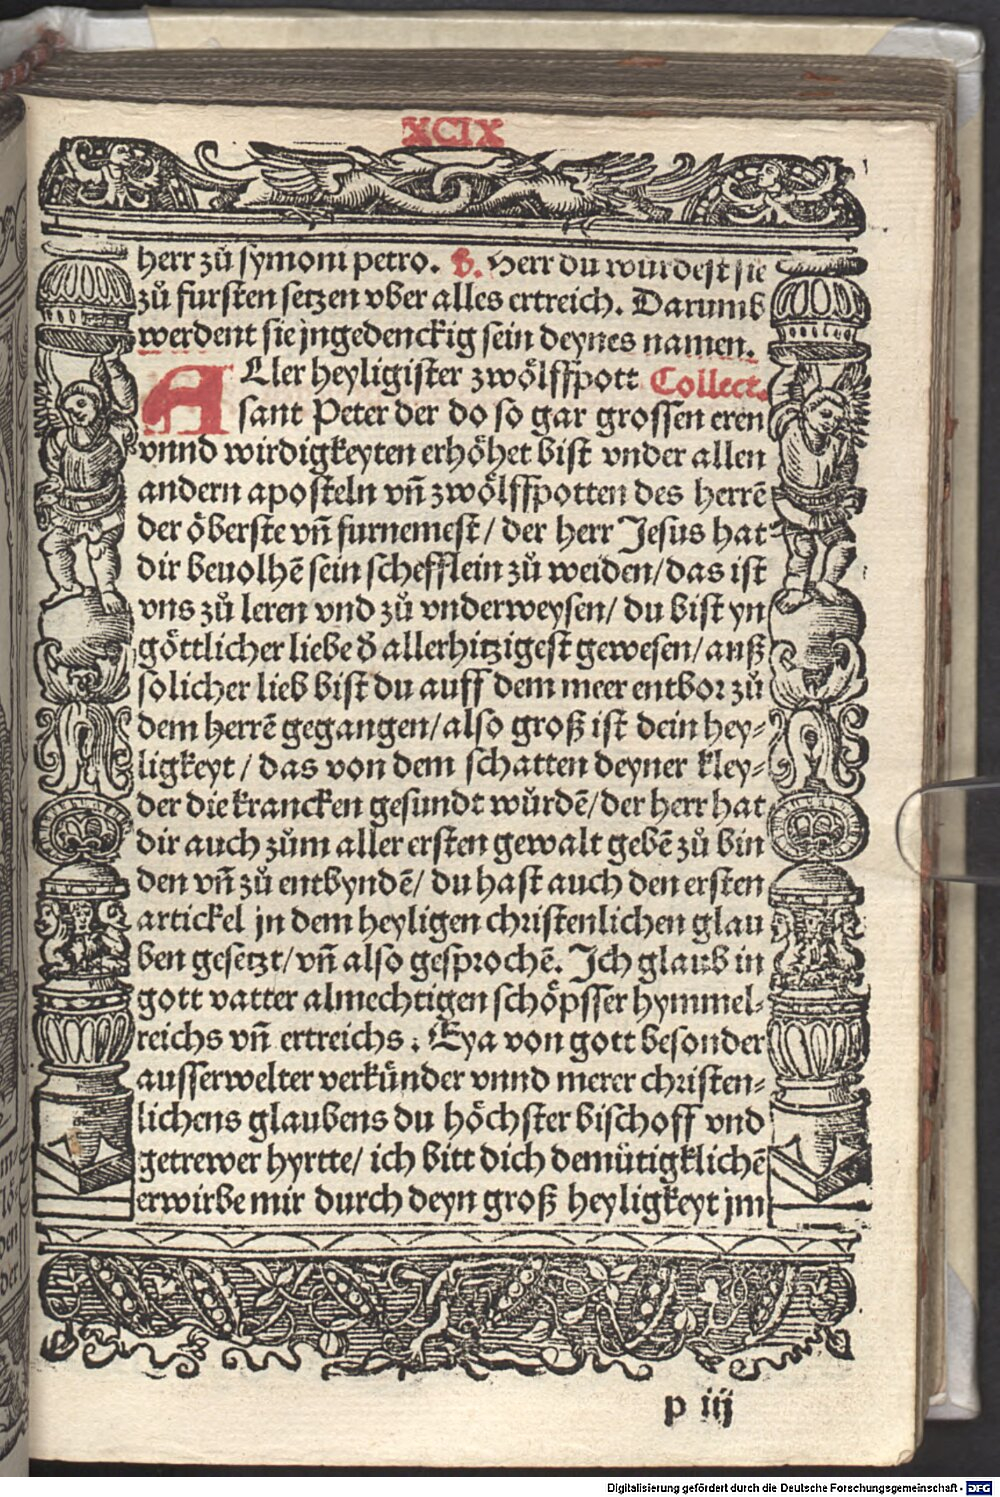 XCIX
herr zů symoni petro. V. Herr du würdest sie
zů fursten setzen vber alles ertreich. Darumb
werdent sie jngedenckig sein deynes namen.
ALler heyligister zwölffpott Collect.
sant Peter der do so gar grossen eren
vnnd wirdigkeyten erhöhet bist vnder allen
andern aposteln vn̄ zwölffpotten des herrē
der öberste vn̄ furnemest / der herr Jesus hat
dir beuolhē sein schefflein zů weiden/das ist
vns zů leren vnd zů vnderweysen/ du bist yn
göttlicher liebe ð allerhitzigest gewesen/ auß
solicher lieb bist du auff dem meer entbor zů
dem herrē gegangen/also groß ist dein hey-
ligkeyt / das von dem schatten deyner kley-
der die krancken gesundt würdē/der herr hat
dir auch zům aller ersten gewalt gebē zů bin
den vn̄ zů entbyndē/ du hast auch den ersten
artickel jn dem heyligen christenlichen glau
ben gesetzt/vn̄ also gesprochē. Jch glaub in
gott vatter almechtigen schöpsser hymmel-
reichs vn̄ ertreichs. Eya von gott besonder
ausserwelter verkünder vnnd merer christen-
lichens glaubens du höchster bischoff vnd
getrewer hyrtte/ ich bitt dich demütigklichē
erwirbe mir durch deyn groß heyligkeyt jm
p iij
Digitalisierung gefördert durch die Deutsche Forschungsgemeinschaft - DFG